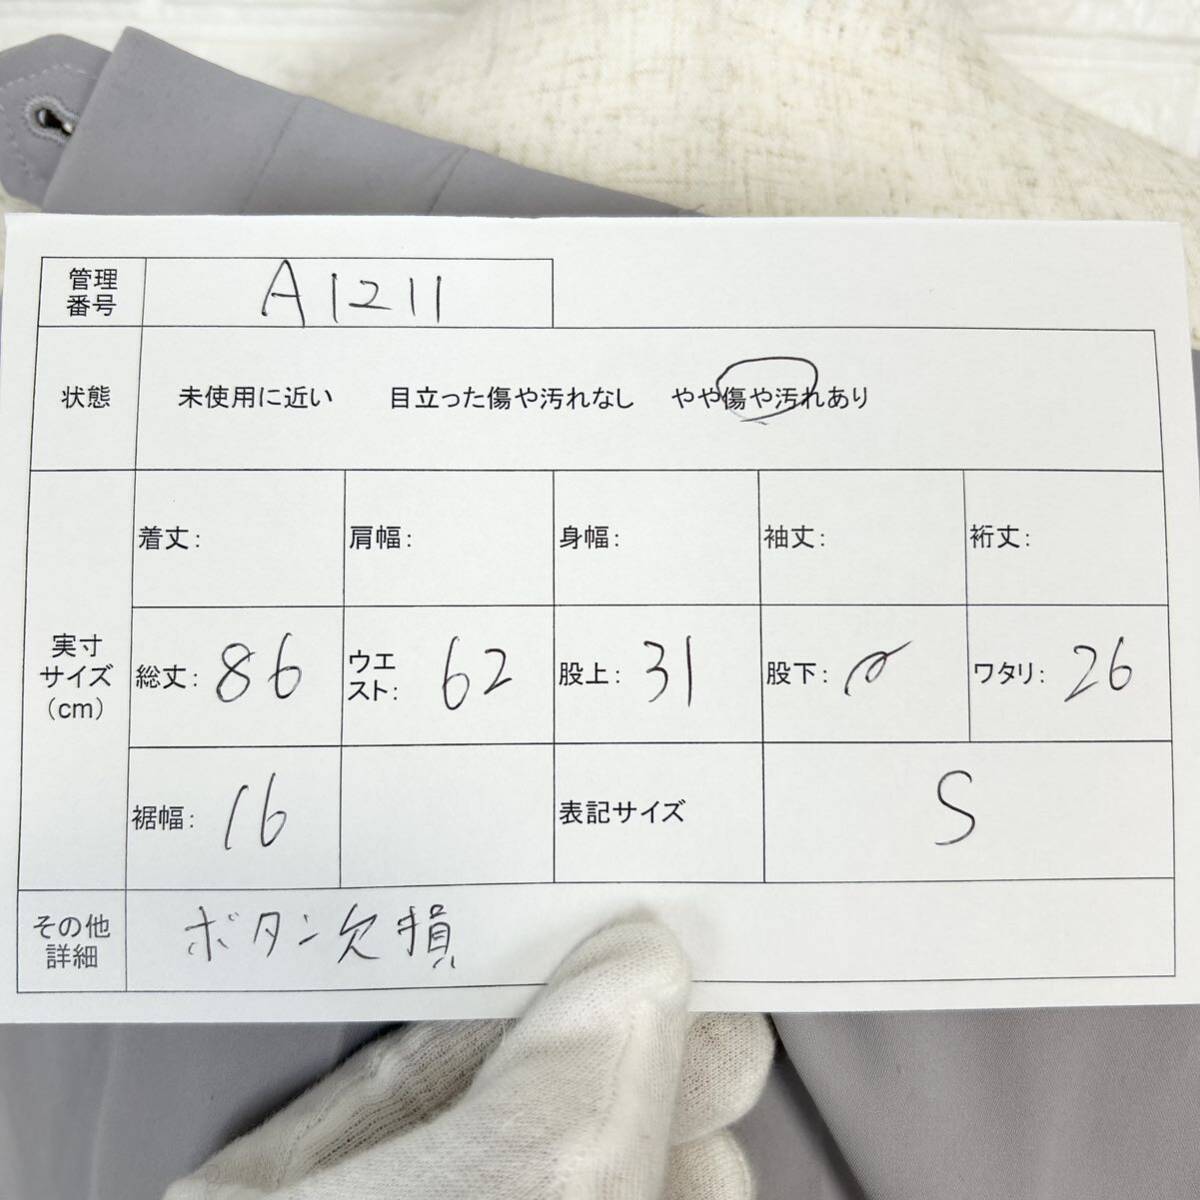 管理番号 A1211
状態 未使用に近い 目立った傷や汚れなし やや傷や汚れあり
実寸サイズ（cm）
着丈: 肩幅: 身幅: 袖丈: 裄丈:
総丈: 86 ウエスト: 62 股上: 31 股下: ワタリ: 26
裾幅: 16 表記サイズ S
その他詳細 ボタン欠損